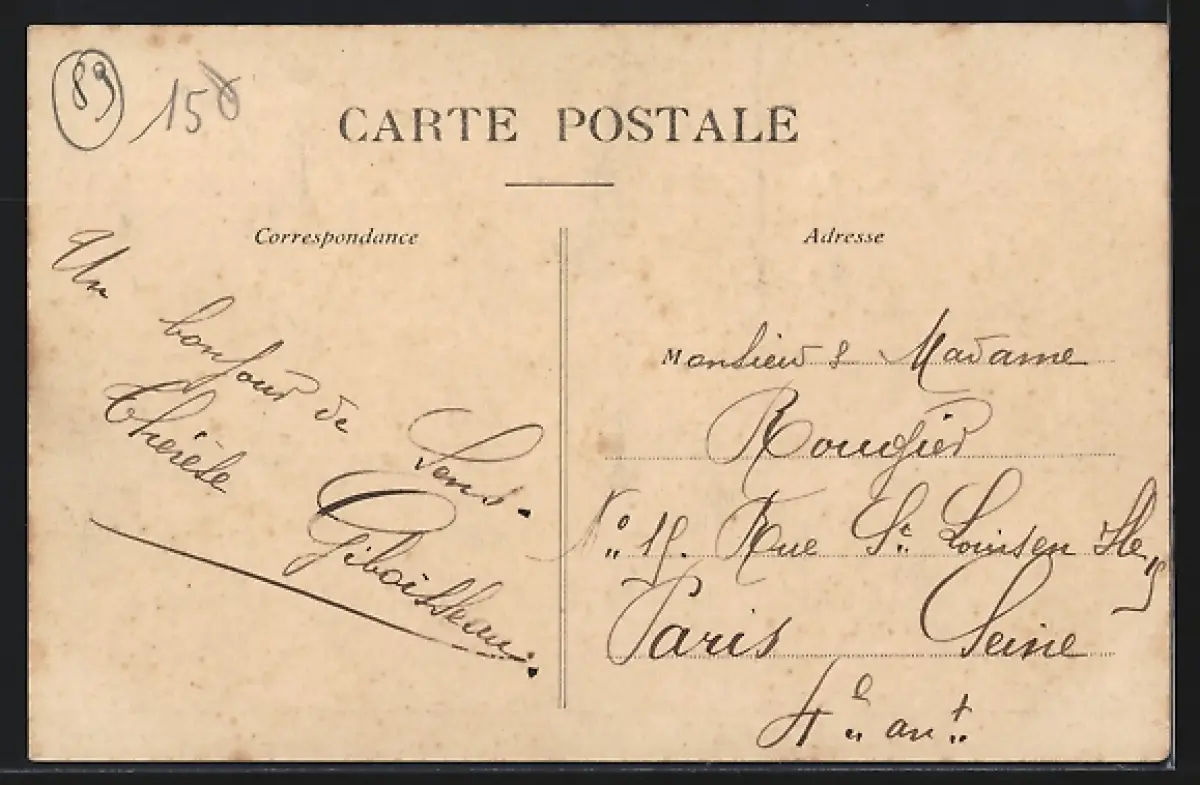 89
150
CARTE POSTALE
Correspondance
Un
bonjour de Sens.
Thérèse
Giboisseau.
Adresse
Monsieur & Madame
Rougier
N° 19. Rue St. Louis en Ile
Paris Seine
4e art